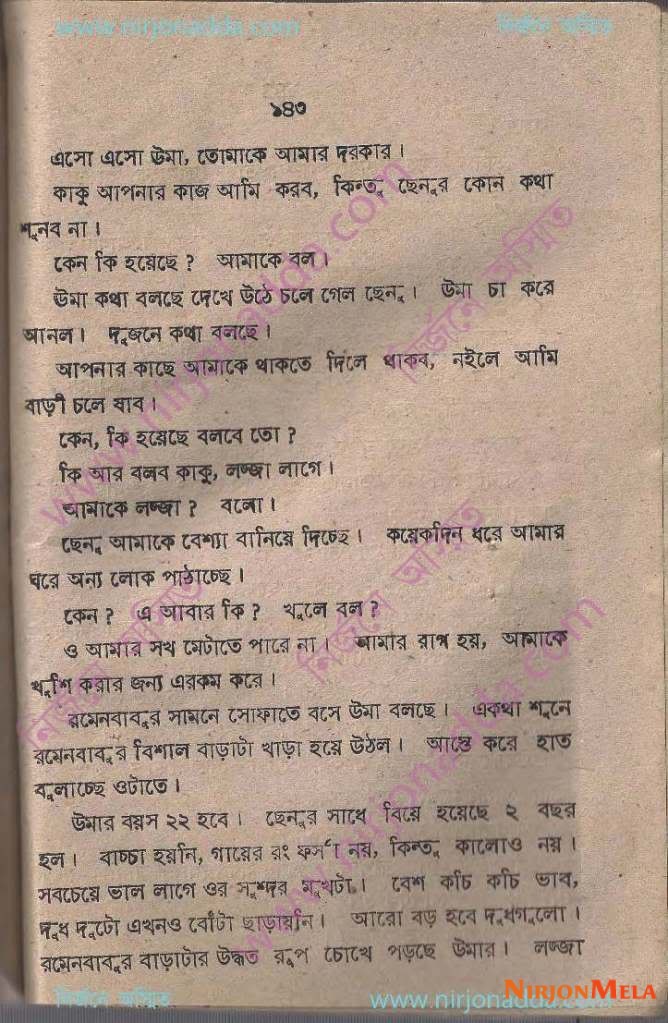 www.nirjonadda.com নির্জনে অস্মিত
১৪৩
এসো এসো উমা, তোমাকে আমার দরকার।
কাকু আপনার কাজ আমি করব, কিন্তু ছেনুর কোন কথা
শুনব না।
কেন কি হয়েছে? আমাকে বল।
উমা কথা বলছে দেখে উঠে চলে গেল ছেনু। উমা চা করে
আনল। দুজনে কথা বলছে।
আপনার কাছে আমাকে থাকতে দিলে থাকব, নইলে আমি
বাড়ী চলে যাব।
কেন, কি হয়েছে বলবে তো?
কি আর বলব কাকু, লজ্জা লাগে।
আমাকে লজ্জা? বলো।
ছেনু আমাকে বেশ্যা বানিয়ে দিচ্ছে। কয়েকদিন ধরে আমার
ঘরে অন্য লোক পাঠাচ্ছে।
কেন? এ আবার কি? খুলে বল?
ও আমার সখ মেটাতে পারে না। আমার রাগ হয়, আমাকে
খুশি করার জন্য এরকম করে।
রমেনবাবুর সামনে সোফাতে বসে উমা বলছে। একথা শুনে
রমেনবাবুর বিশাল বাড়াটা খাড়া হয়ে উঠল। আস্তে করে হাত
বুলাচ্ছে ওটাতে।
উমার বয়স ২২ হবে। ছেনুর সাথে বিয়ে হয়েছে ২ বছর
হল। বাচ্চা হয়নি, গায়ের রং ফর্সা নয়, কিন্তু কালোও নয়।
সবচেয়ে ভাল লাগে ওর সুন্দর মুখটা। বেশ কচি কচি ভাব,
দুধ দুটো এখনও বোঁটা ছাড়ায়নি। আরো বড় হবে দুধগুলো।
রমেনবাবুর বাড়াটার উদ্ধত রূপ চোখে পড়ছে উমার। লজ্জা
NIRJONMELA
নির্জনে অস্মিত www.nirjonadda.com